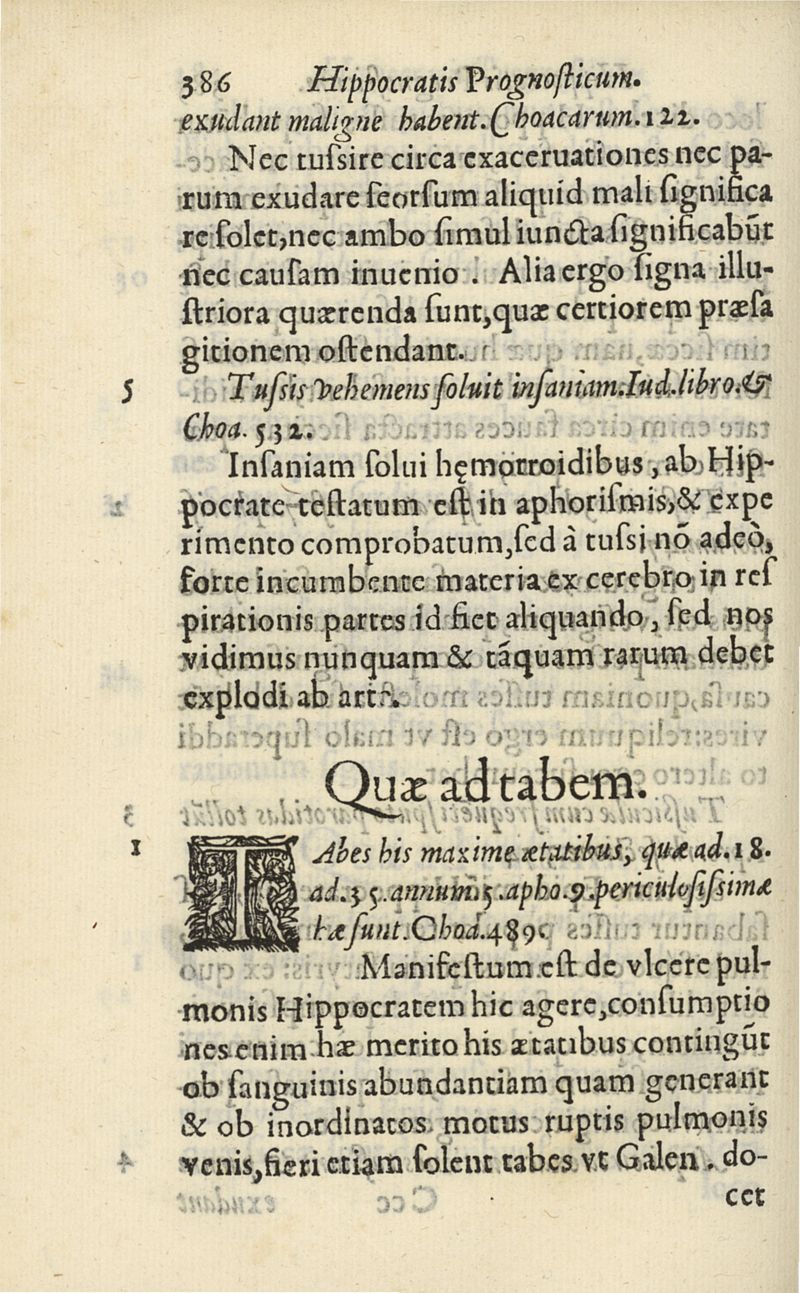 386 Hippocratis Prognoſticum.
exudant maligne habent. Choacarum. 122.
Nec tuſsire circa exaceruationes nec pa-
rum exudare ſeorſum aliquid mali ſignifica
re ſolet, nec ambo ſimul iuncta ſignificabūt
nec cauſam inuenio. Alia ergo ſigna illu-
ſtriora quærenda ſunt, quæ certiorem præſa
gitionem oſtendant.
5 Tuſsis vehemens ſoluit inſaniam. Iud. libro. &
Choa. 532.
Inſaniam ſolui hęmorroidibus, ab Hip-
pocrate teſtatum eſt in aphoriſmis, & expe
rimento comprobatum, ſed à tuſsi nō adeò,
forte incumbente materia ex cerebro in reſ
pirationis partes id fiet aliquando, ſed nos
vidimus nunquam & tāquam rarum debet
explodi ab arte.
Quæ ad tabem.
1 TAbes his maxime ætatibus, quæ ad. 18.
ad. 35. annum. 5. apho. 9. periculoſiſsimæ
hæ ſunt. Choa. 489.
Manifeſtum eſt de vlcere pul-
monis Hippocratem hic agere, conſumptio
nes enim hæ merito his ætatibus contingūt
ob ſanguinis abundantiam quam generant
& ob inordinatos motus ruptis pulmonis
venis, fieri etiam ſolent tabes vt Galen. do-
cet